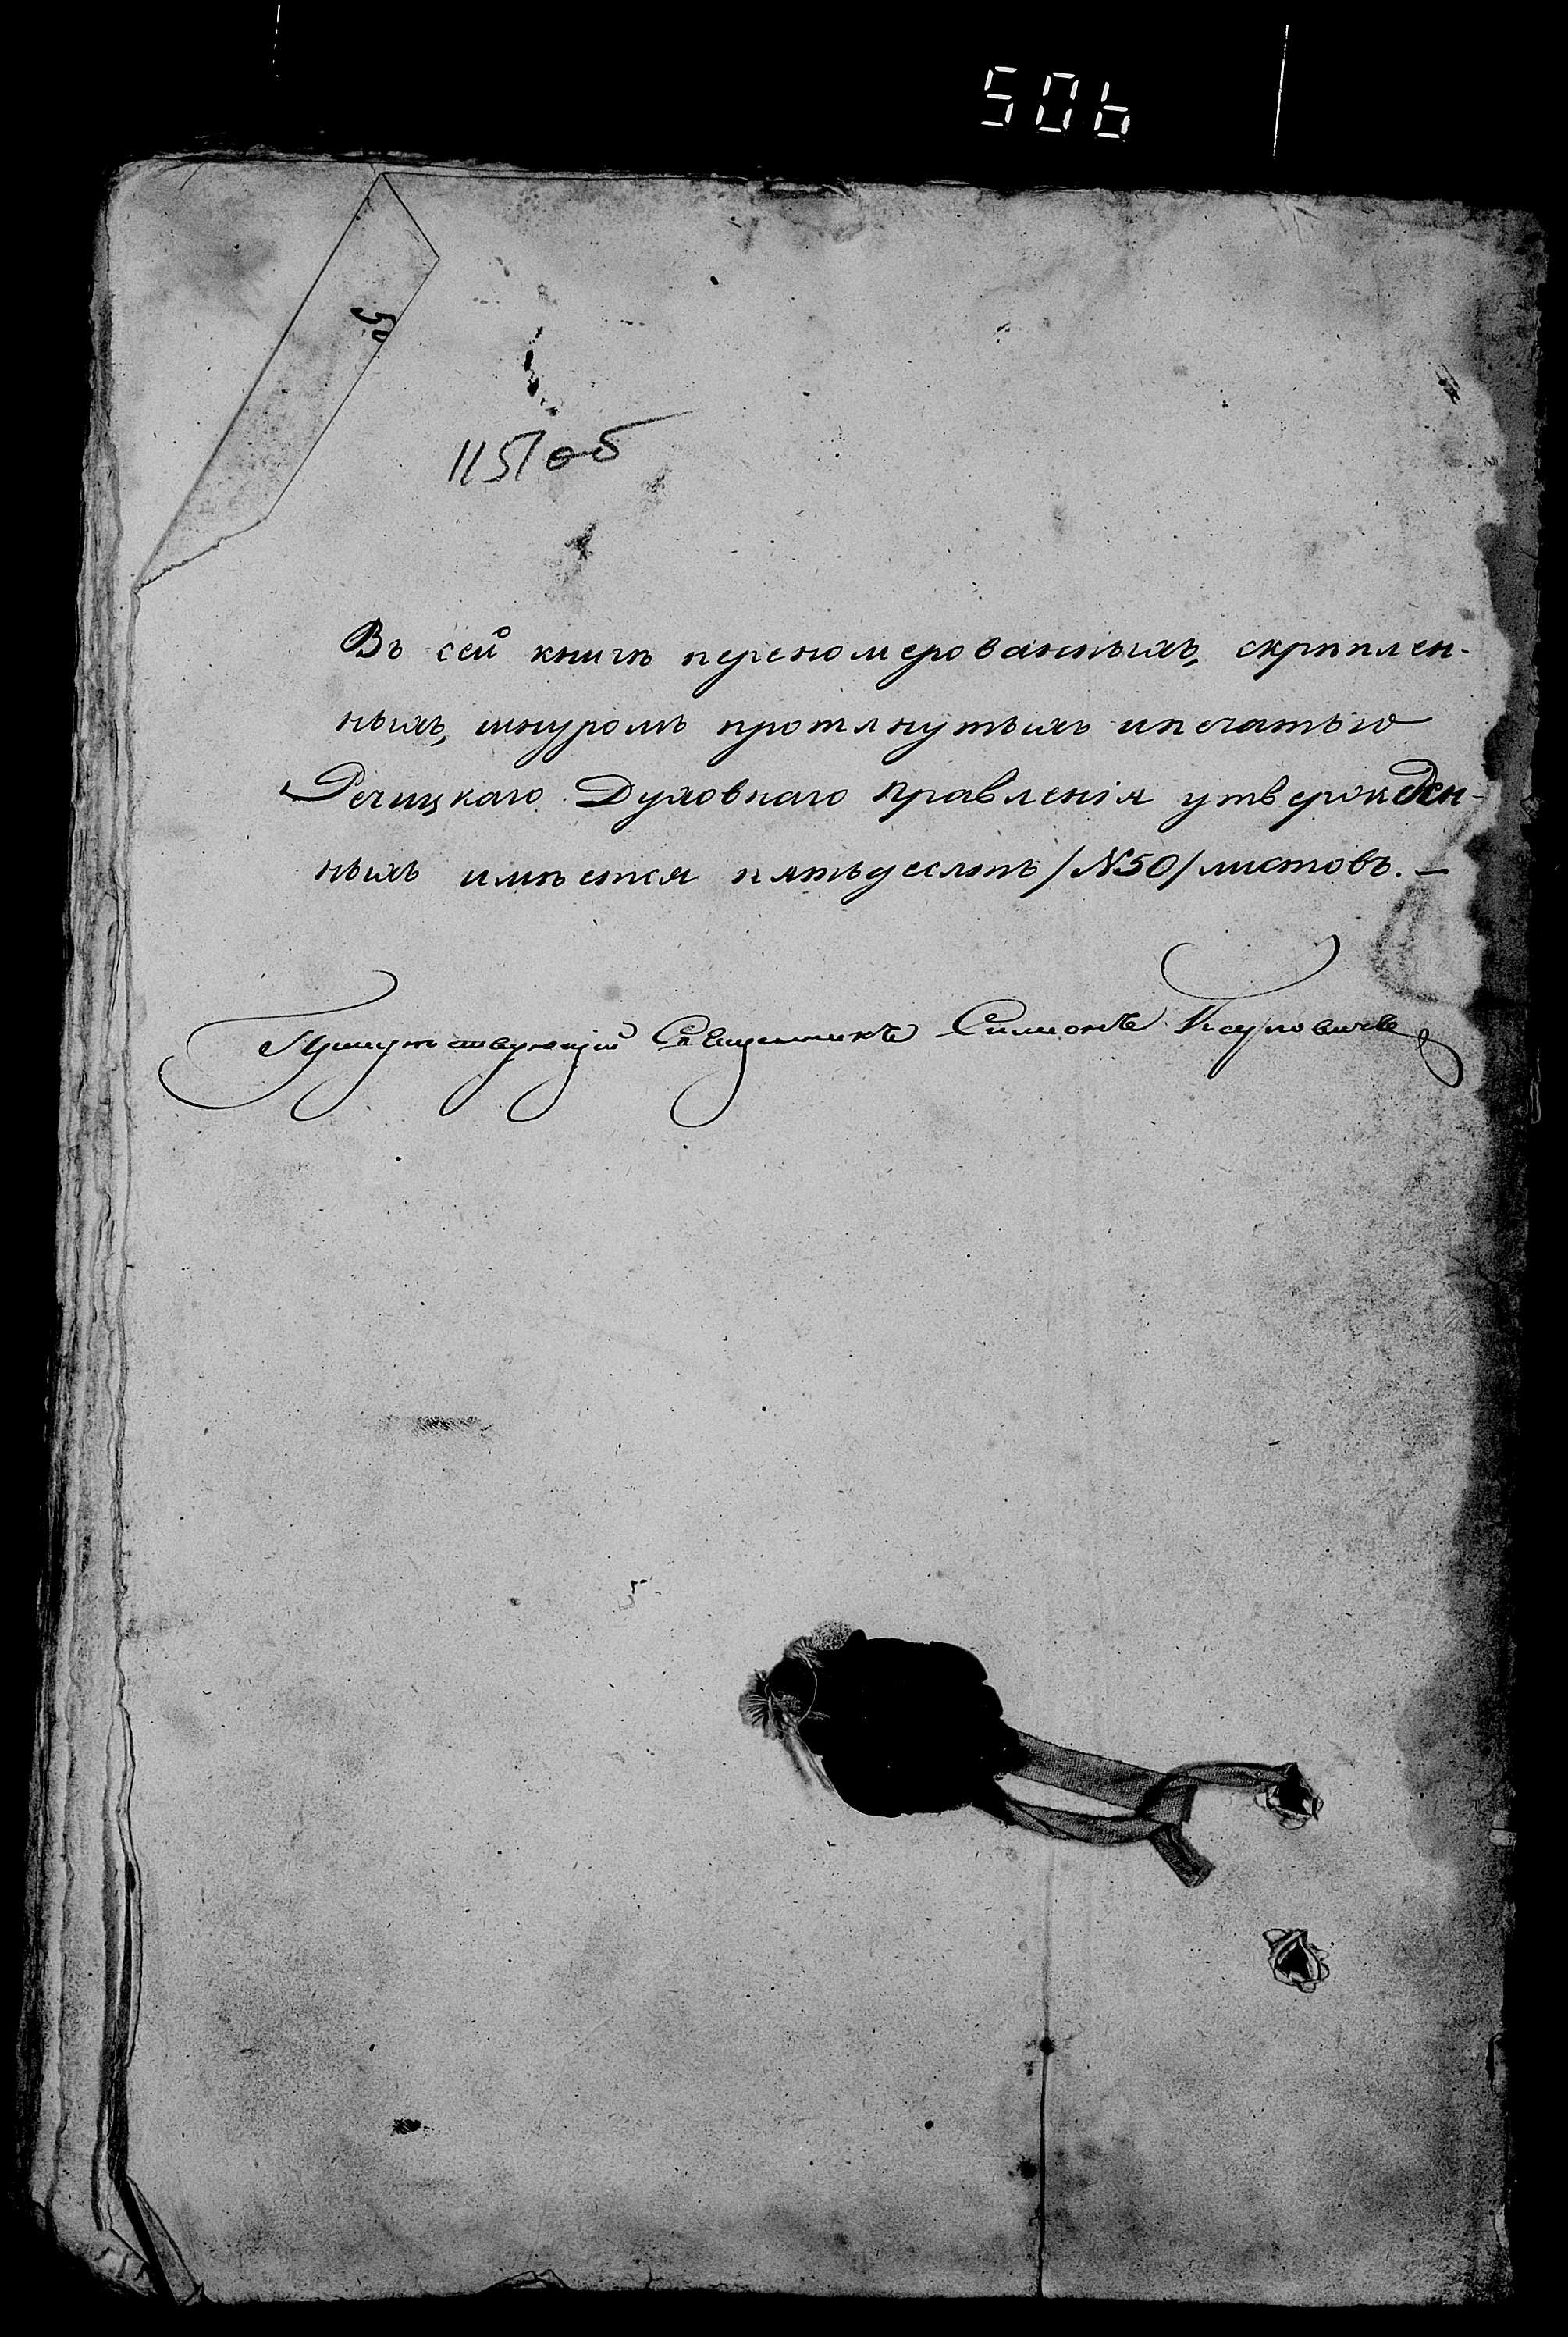 506
50
1151 об
Въ сей книгѣ переномерованныхъ, скрѣплен-
ныхъ, шнуромъ протянутыхъ и печатью
Речицкаго Духовнаго Правленія утвержден-
ныхъ имѣется пятьдесятъ /№50/ листовъ. —
Присутствующій Священникъ Симонъ